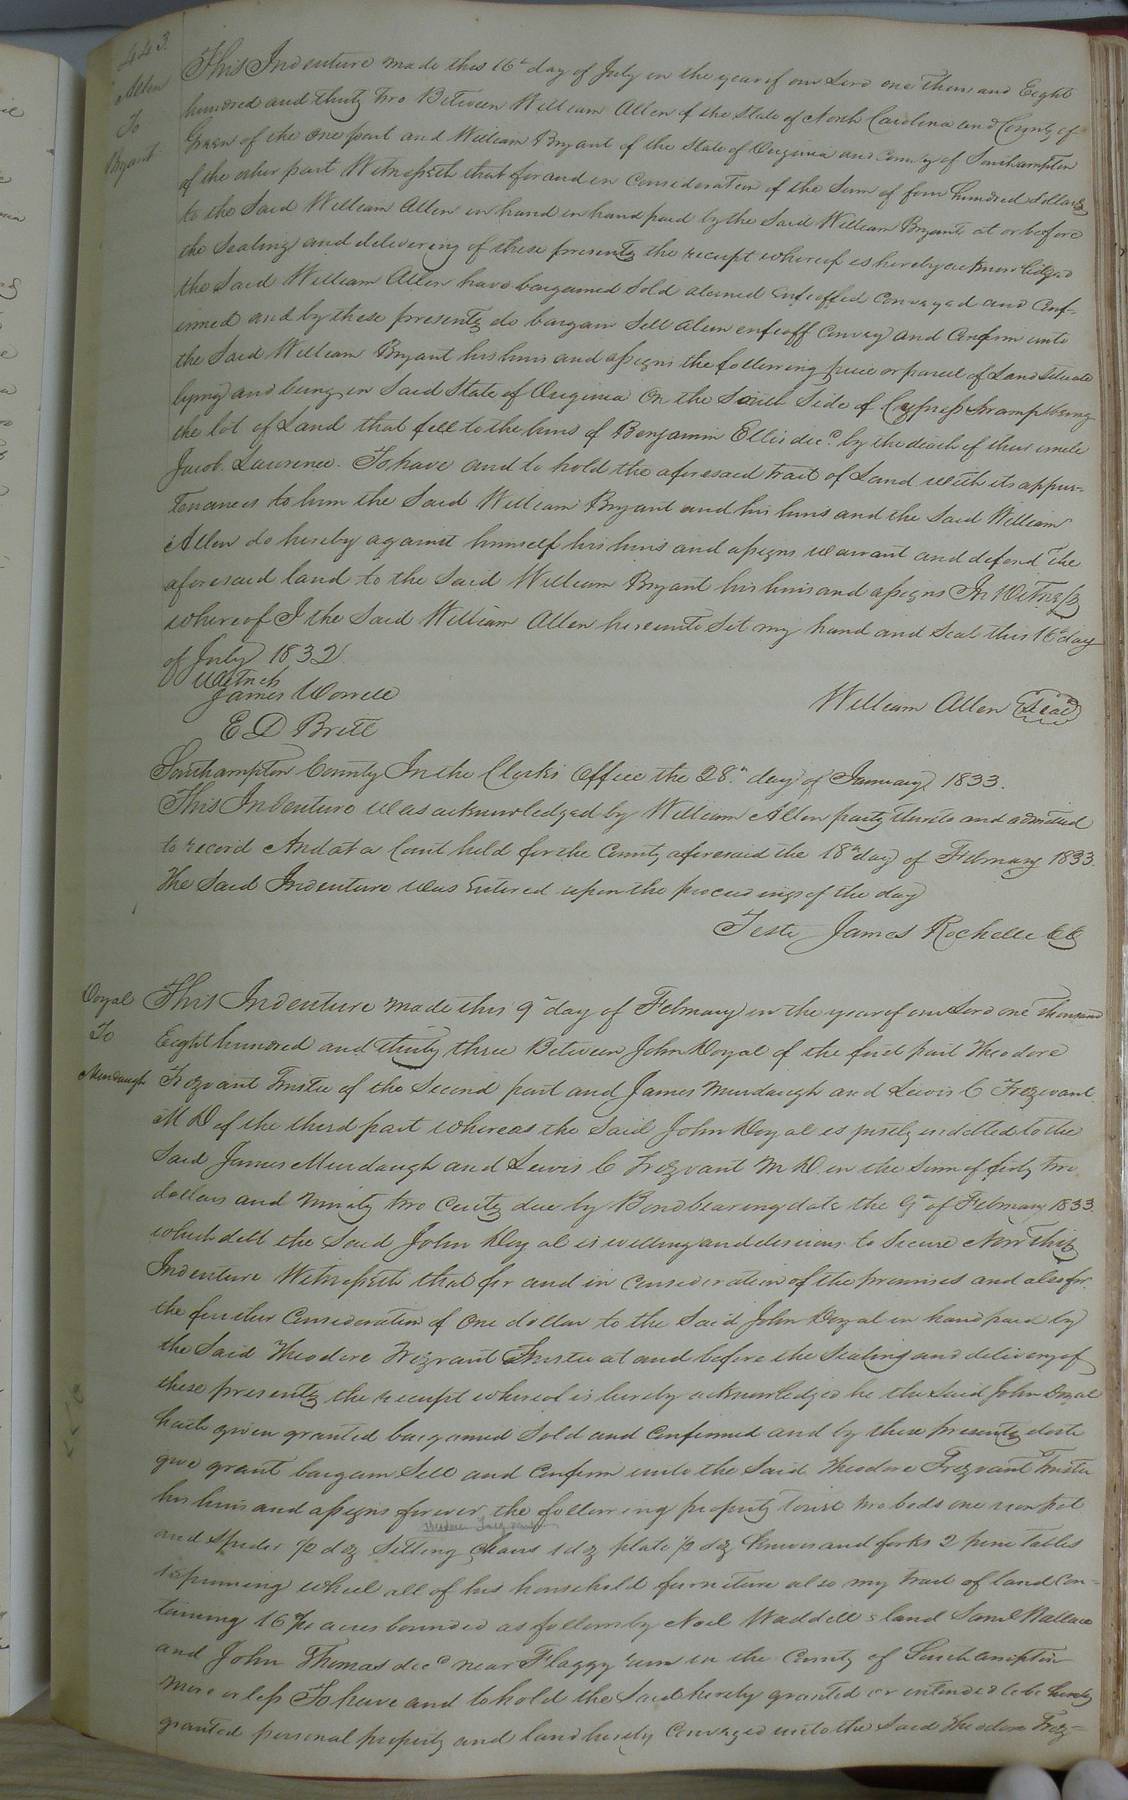 443.
Allen
To
Bryant
This Indenture made this 16th day of July in the year of our Lord one Thousand Eight
hundred and thirty two Between William Allen of the State of North Carolina and County of
Green of the one part and William Bryant of the State of Virginia and County of Southampton
of the other part Witnesseth that for and in Consideration of the Sum of four hundred dollars
to the Said William Allen in hand in hand paid by the Said William Bryant at or before
the Sealing and delivering of these presents the receipt whereof is hereby acknowledged
the Said William Allen have bargained Sold aliened enfeoffed Conveyed and Conf-
irmed and by these presents do bargain Sell alien enfeoff Convey and Confirm unto
the Said William Bryant his heirs and assigns the following piece or parcel of Land Situate
lying and being in Said State of Virginia On the South Side of Cypress Swamp being
the lot of Land that fell to the heirs of Benjamin Ellis decd. by the death of their uncle
Jacob Lawrence. To have and to hold the aforesaid tract of Land with its appur-
tenances to him the Said William Bryant and his heirs and the Said William
Allen do hereby against himself his heirs and assigns warrant and defend The
aforesaid land to the Said William Bryant his heirs and assigns In Witness
whereof I the Said William Allen hereunto Set my hand and Seal this 16th day
of July 1832
Witness
James Worrell
William Allen (Seal)
E D Britt
Southampton County In the Clerks Office the 28th day of January 1833.
This Indenture was acknowledged by William Allen party thereto and admitted
to record And at a Court held for the County aforesaid the 18th day of February 1833.
The Said Indenture was Entered upon the proceedings of the day
Teste James Rochelle CC
Doyal
To
Murdaugh
This Indenture made this 9th day of February in the year of our Lord one Thousand
Eight hundred and thirty three Between John Doyal of the first part Theodore
Trezvant Trustee of the Second part and James Murdaugh and Lewis C Trezvant
M D of the third part whereas the Said John Doyal is justly indebted to the
Said James Murdaugh and Lewis C Trezvant M D. in the Sum of forty two
dollars and Ninety two Cents due by Bond bearing date the 9th of February 1833.
which debt the Said John Doyal is willing and desirous to Secure Now This
Indenture Witnesseth that for and in Consideration of the premises and also for
the further Consideration of One dollar to the Said John Doyal in hand paid by
the Said Theodore Trezvant Trustee at and before the Sealing and delivery of
these presents the receipt whereof is hereby acknowledged he the Said John Doyal
hath given granted bargained Sold and Confirmed and by these presents doth
give grant bargain Sell and Confirm unto the Said Theodore Trezvant Trustee
his heirs and assigns forever the following property towit two beds one iron pot
and spider 1/2 doz Sitting Chairs 1 dz plate 1/2 dz knives and forks 2 pine tables
1 spinning wheel all of his household furniture also my tract of land Con-
taining 16 acres bounded as follows by Noel Waddill s land Saml Wallace
and John Thomas decd near Flaggy run in the County of Southampton
more or less To have and to hold the Said hereby granted or intended to be hereby
granted personal property and land hereby Conveyed unto the Said Theodore Trez=